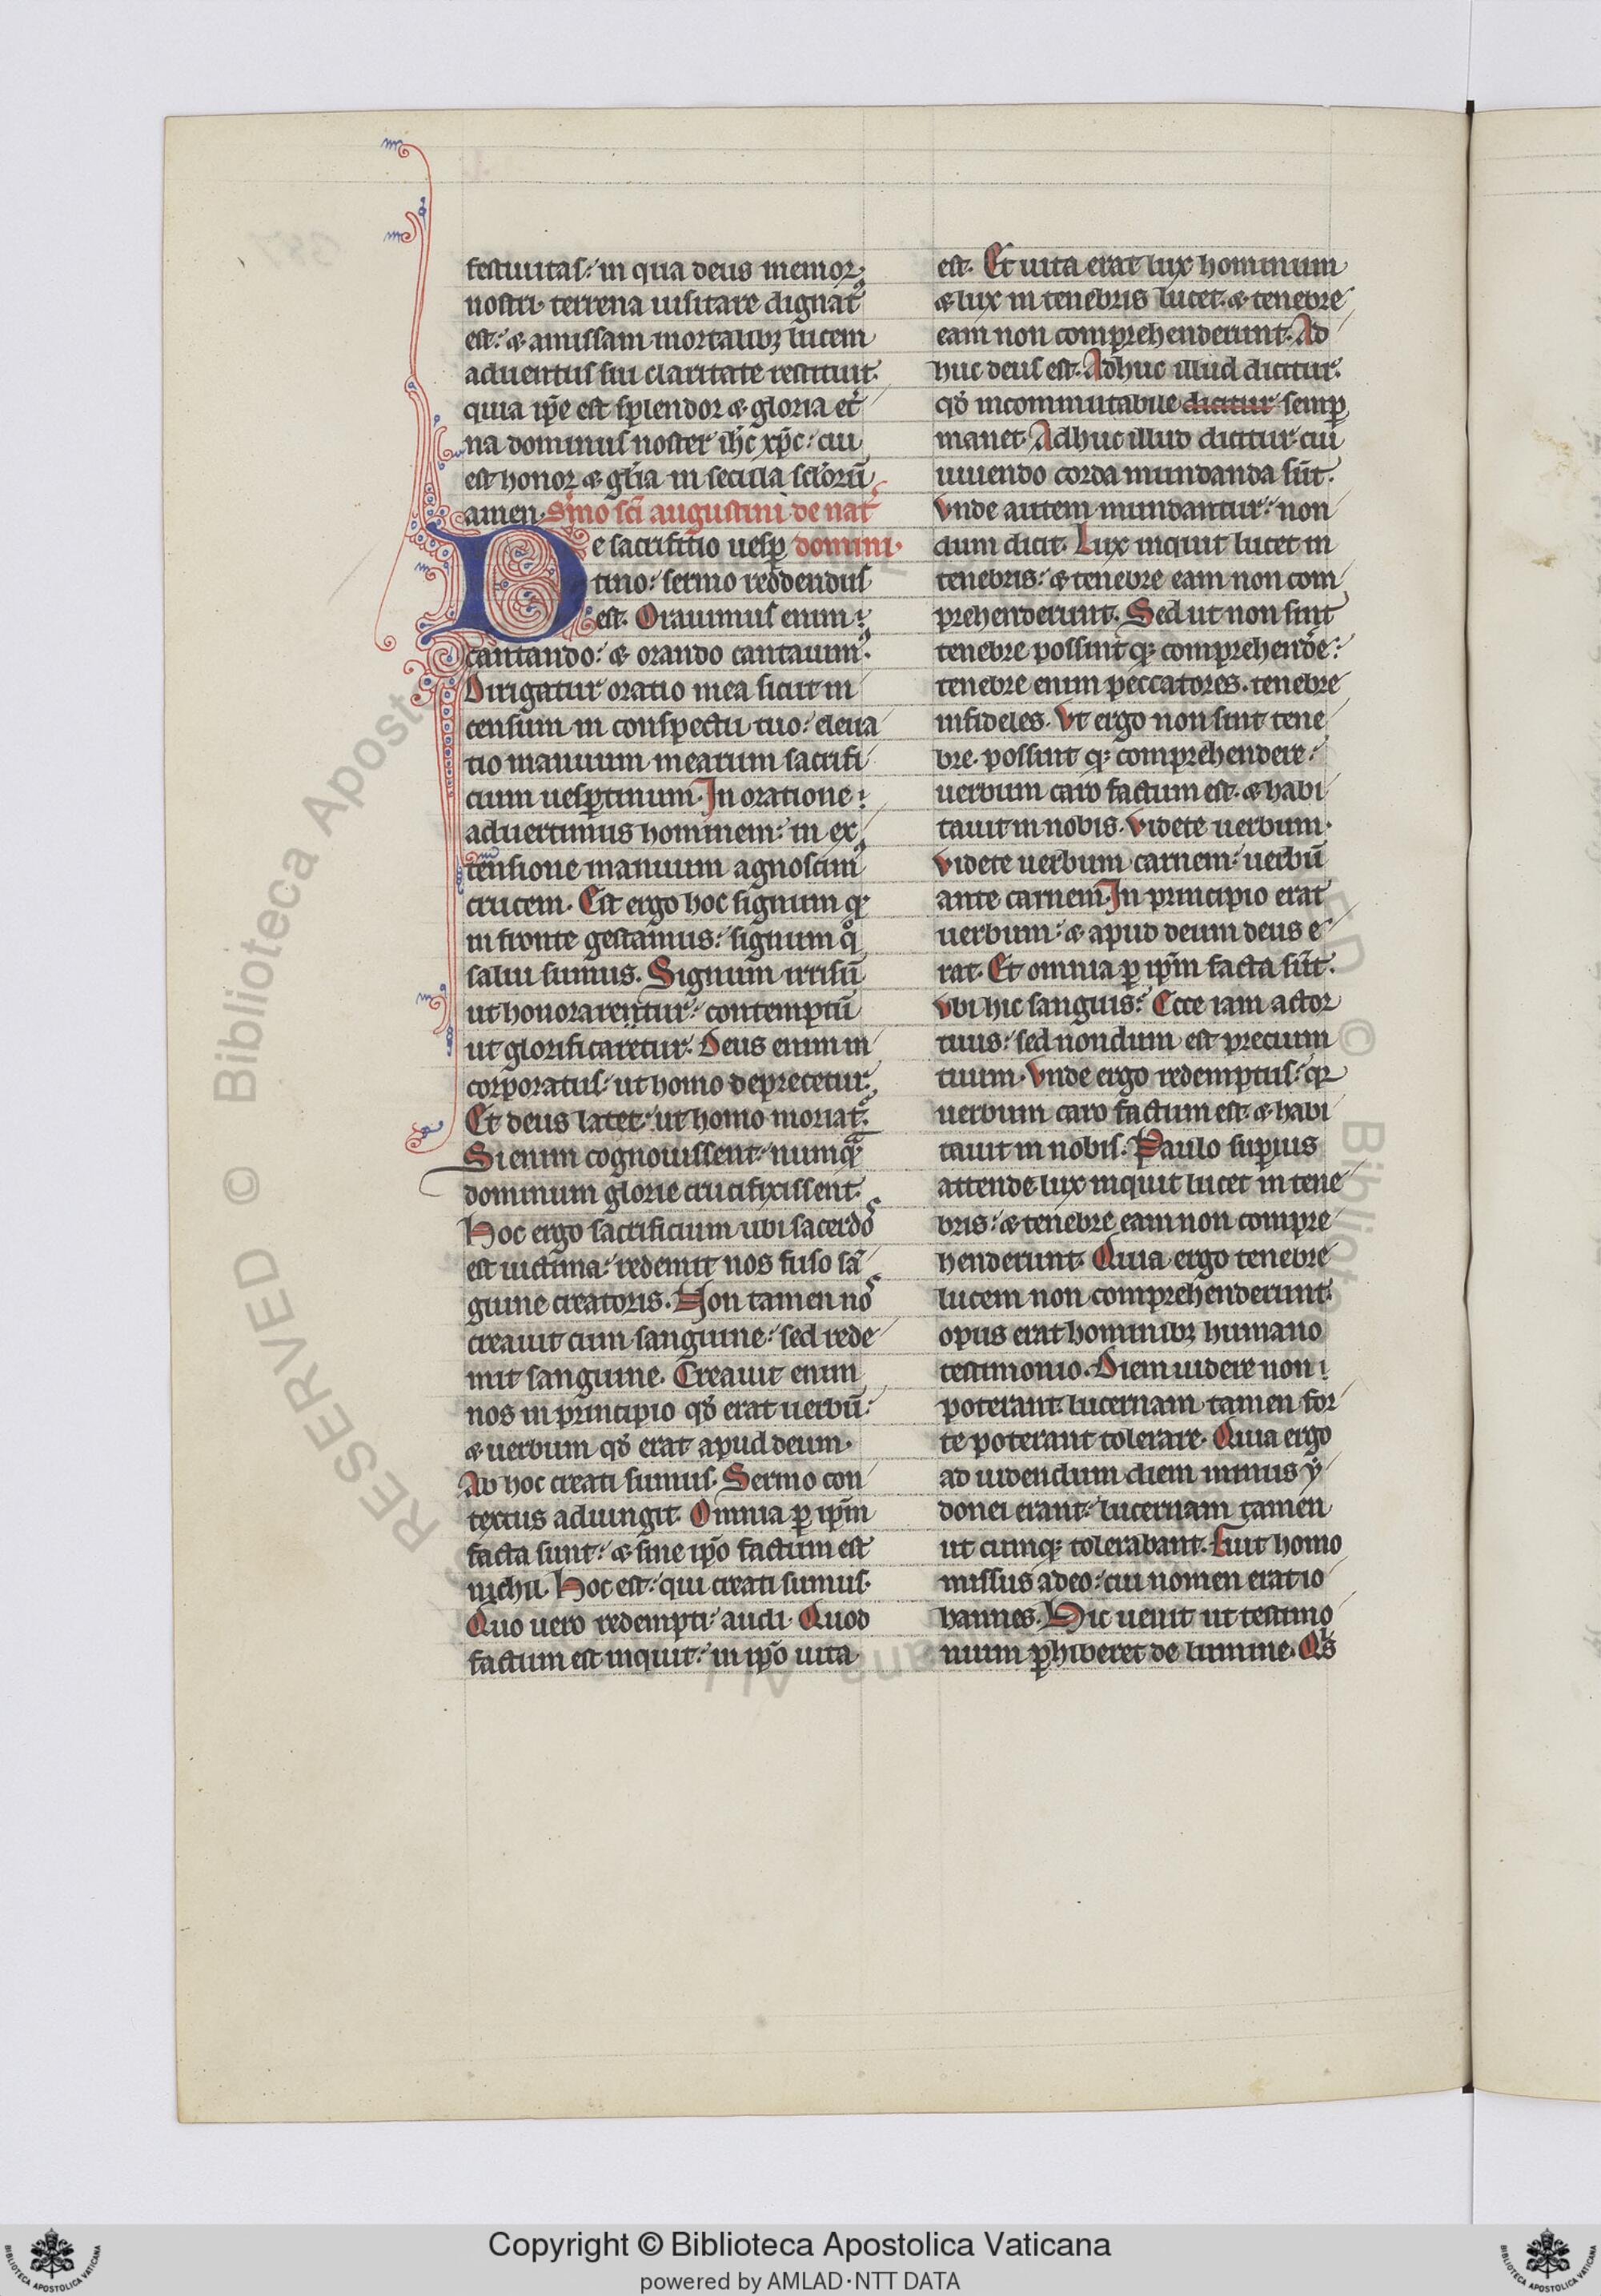 festiuitas: in qua deus memor
nostri. terrena uisitare dignatꝰ
est: ⁊ amissam mortalibꝫ lucem
aduentus sui claritate restituit.
quia ip̄e est splendor ⁊ gloria et̾
na dominus noster ih̄c xp̄c: cui
est honor ⁊ gl̄ia in secula sc̄lorū
amen. S̾mo sc̄i augustini de nat̾
De sacrifitio uesꝑ domini.
tino: sermo reddendus
est. Orauimus enim
cantando: ⁊ orando cantauimꝰ.
Dirigatur oratio mea sicut in
censum in conspectu tuo: eleua
tio manuum mearum sacrifi
cium uesꝑtinum. In oratione
aduertimus hominem: in ex
tensione manuum agnoscimꝰ
crucem. Est ergo hoc signum qͥ
in fronte gestamus: signum qͦ
salui sumus. Signum irrisū
ut honorarentur: contemptū
ut glorificaretur. Deus enim in
corporatus: ut homo deprecetur.
Et deus latet: ut homo moriat᷑.
Si enim cognouissent: numqᷓ
dominum glorie crucifixissent.
Hoc ergo sacrificium ubi sacerdoˢ
est uictima: redemit nos fuso sā
guine creatoris. Non tamen noˢ
creauit cum sanguine: sed rede
mit sanguine. Creauit enim
nos in principio qd̾ erat uerbū:
⁊ uerbum qd̾ erat apud deum.
Ab hoc creati sumus. Sermo con
textus adiungit. Omnia ꝑ ip̄m
facta sunt: ⁊ sine ip̄o factum est
nichil. Hoc est: qui creati sumus.
Quo uero redempti: audi. Quod
factum est inquit: in ip̄o uita
est. Et uita erat lux hominum
⁊ lux in tenebris lucet. ⁊ tenebre
eam non comprehenderunt. Ad
huc deus est. Adhuc illud dicitur.
qd̾ incommutabile dicitur semꝑ
manet. Adhuc illud dicitur cui
uiuendo corda mundanda sūt.
Vnde autem mundantur: non
dum dicit. Lux inquit lucet in
tenebris: ⁊ tenebre eam non com
prehenderunt. Sed ut non sint
tenebre possintqꝫ comprehend̾e:
tenebre enim peccatores. tenebre
infideles. Vt ergo non sint tene
bre. possintqꝫ comprehendere:
uerbum caro factum est. ⁊ habi
tauit in nobis. Videte uerbum.
Videte uerbum carnem: uerbū
ante carnem. In principio erat
uerbum: ⁊ apud deum deus e
rat. Et omnia ꝑ ip̄m facta sūt.
Vbi hic sanguis: Ecce iam actor
tuus: sed nondum est precium
tuum. Vnde ergo redemptus: qꝛ
uerbum caro factum est. ⁊ habi
tauit in nobis. Paulo suꝑius
attende lux inquit lucet in tene
bris: ⁊ tenebre eam non compre
henderunt. Quia ergo tenebre
lucem non comprehenderunt.
opus erat hominibꝫ humano
testimonio. Diem uidere non
poterant. lucernam tamen for
te poterant tolerare. Quia ergo
ad uidendum diem minus y
donei erant: lucernam tamen
ut cumqꝫ tolerabant. Fuit homo
missus a deo: cui nomen erat io
hannes. Hic uenit ut testimo
nium ꝑhiberet de lumine. Qͥs
Copyright © Biblioteca Apostolica Vaticana
powered by AMLAD·NTT DATA